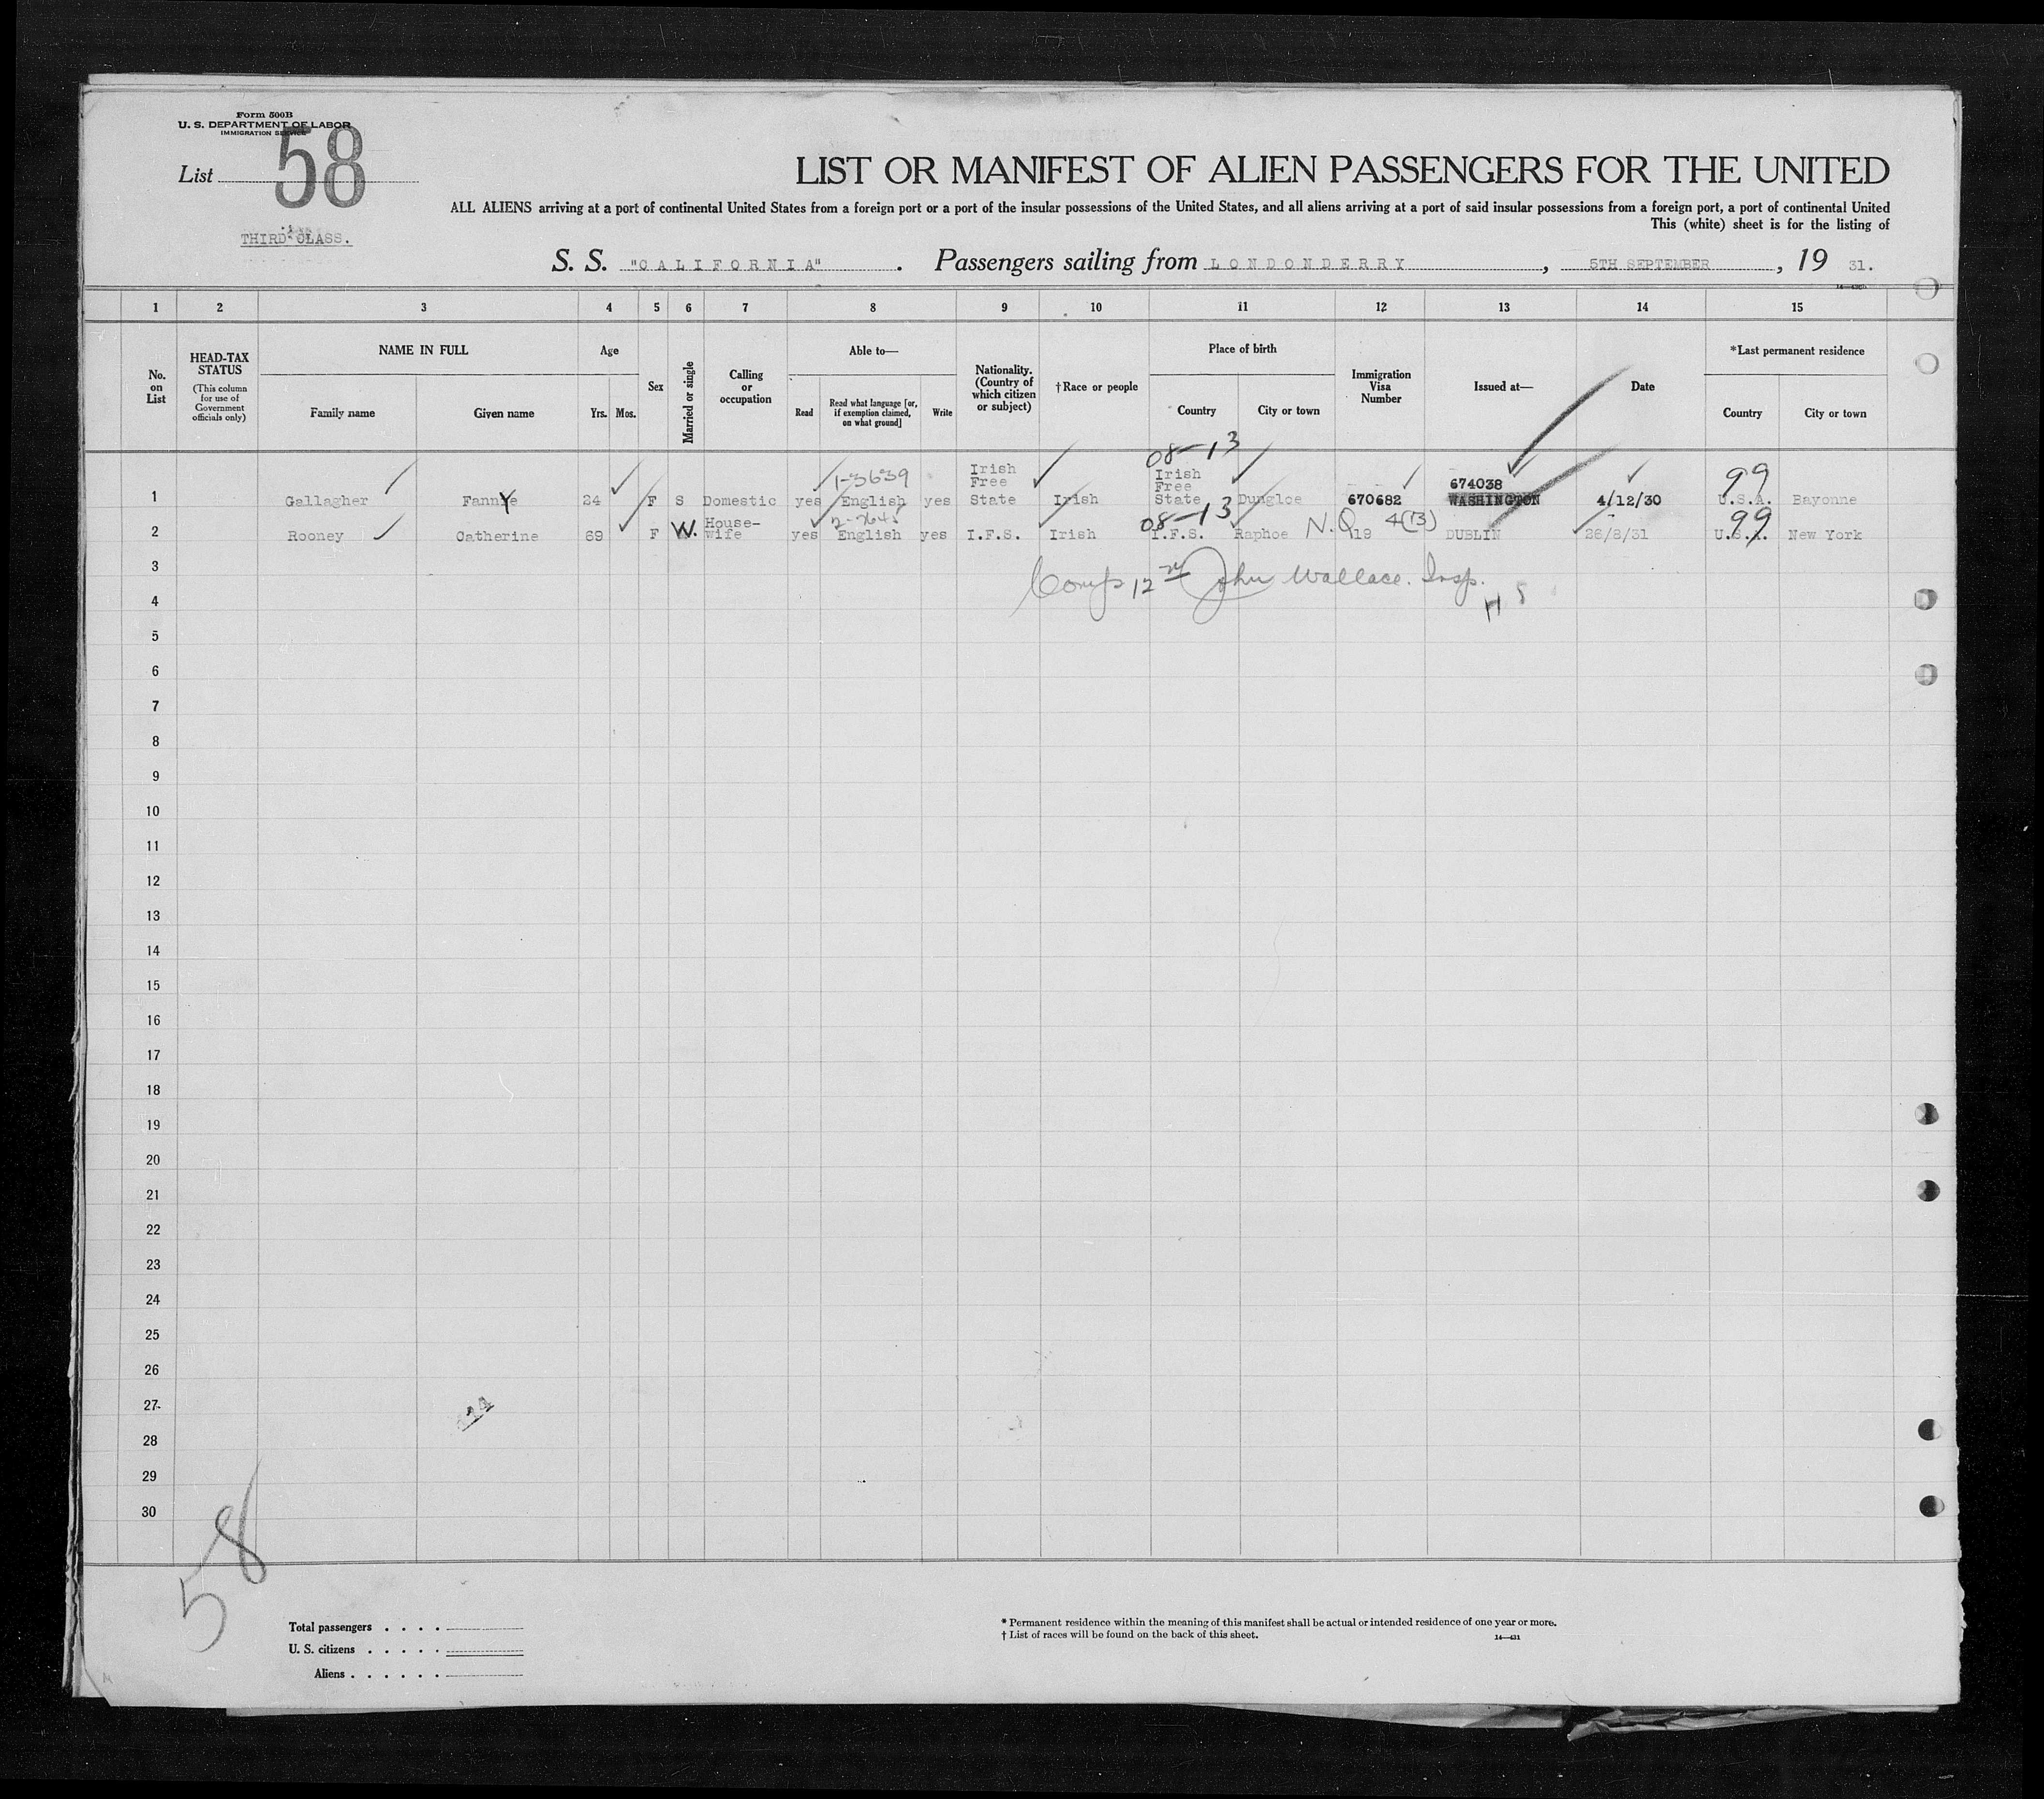 Form 500B
U. S. DEPARTMENT OF LABOR
IMMIGRATION SERVICE
List 58
THIRD CLASS.
LIST OR MANIFEST OF ALIEN PASSENGERS FOR THE UNITED
ALL ALIENS arriving at a port of continental United States from a foreign port or a port of the insular possessions of the United States, and all aliens arriving at a port of said insular possessions from a foreign port, a port of continental United
This (white) sheet is for the listing of
S. S. "CALIFORNIA" . Passengers sailing from LONDONDERRY , 5TH SEPTEMBER , 19 31.
1 2 3 4 5 6 7 8 9 10 11 12 13 14 15
No. on List
HEAD-TAX STATUS
(This column for use of Government officials only)
NAME IN FULL
Family name Given name
Age
Yrs. Mos.
Sex
Married or single
Calling or occupation
Able to—
Read Read what language [or, if exemption claimed, on what ground] Write
Nationality. (Country of which citizen or subject)
†Race or people
Place of birth
Country City or town
Immigration Visa Number
Issued at—
Date
*Last permanent residence
Country City or town
08-13
1-3639
674038
99
1 Gallagher Fannye Y 24 F S Domestic yes English yes Irish Free State Irish Irish Free State Dungloe 670682 WASHINGTON 4/12/30 U.S.A. Bayonne
08-13 N.Q 4(13) 99
2 Rooney Catherine 69 F W. House-wife yes English yes I.F.S. Irish I.F.S. Raphoe 19 DUBLIN 26/8/31 U.S.A. New York
3
John Wallace. Insp.
4
H 5
5
6
7
8
9
10
11
12
13
14
15
16
17
18
19
20
21
22
23
24
25
26
27
28
29
30
58
Total passengers . . . .
U. S. citizens . . . . .
Aliens . . . . . .
* Permanent residence within the meaning of this manifest shall be actual or intended residence of one year or more.
† List of races will be found on the back of this sheet.
14—431